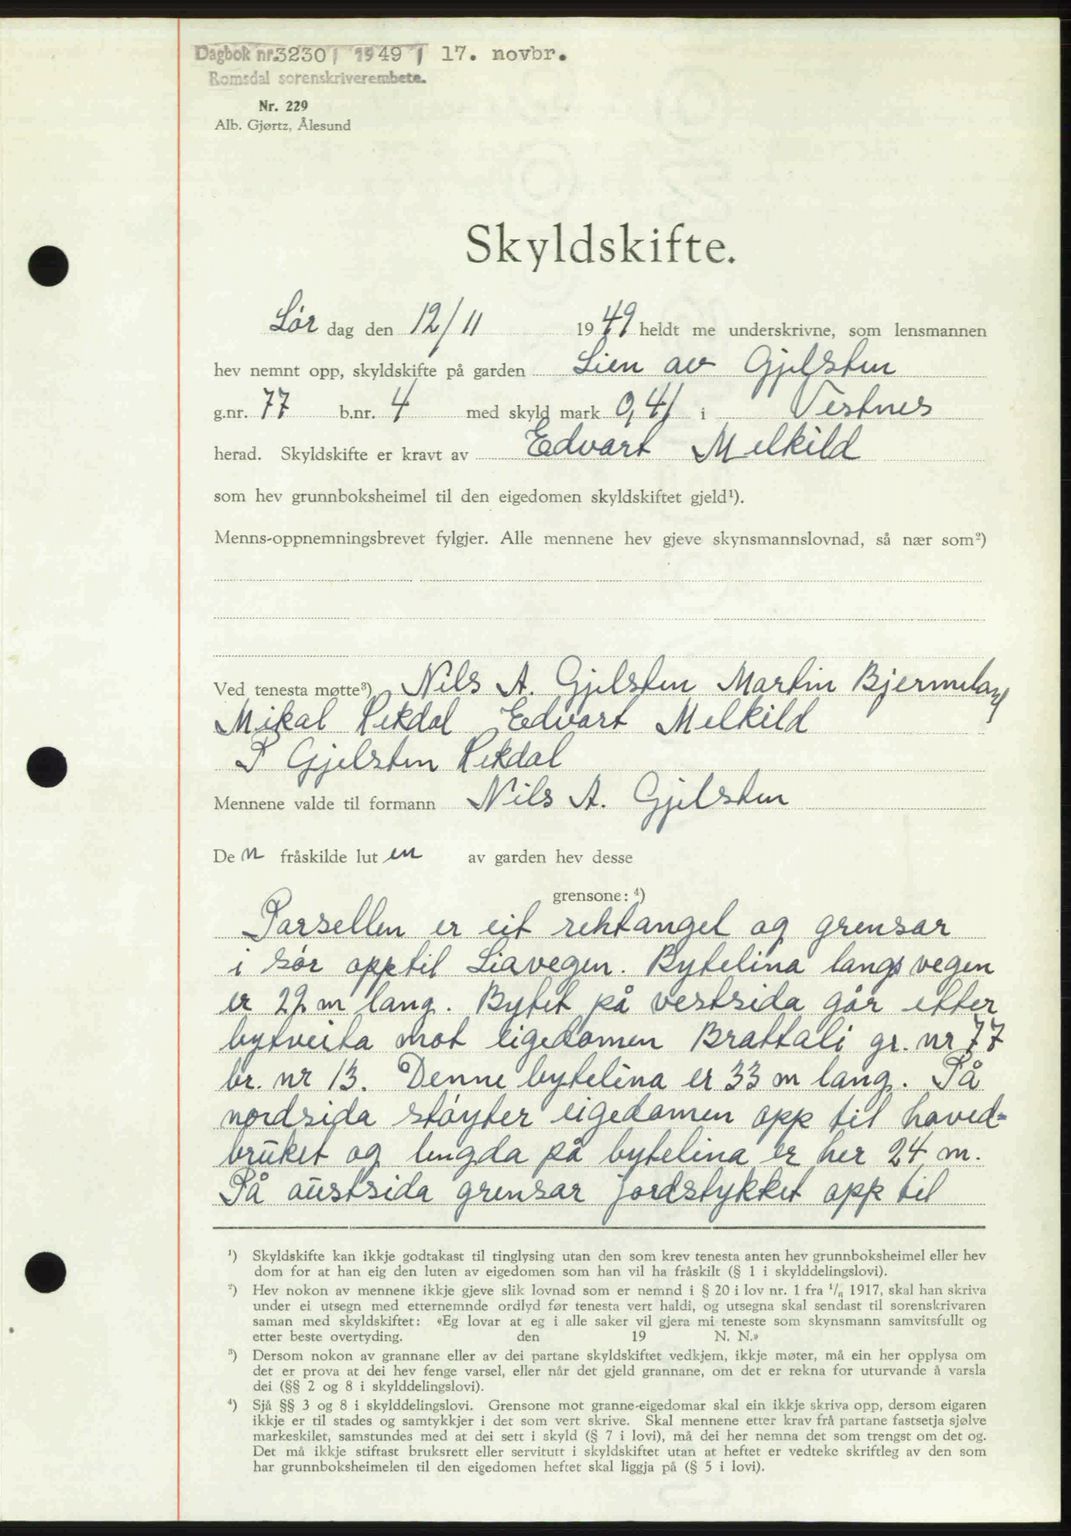 Dagbok nr. 3230 / 1949 / 17. novbr.
Romsdal sorenskriverembete.
Nr. 229
Alb. Gjørtz, Ålesund
Skyldskifte.
Lør dag den 12/11 1949 heldt me underskrivne, som lensmannen
hev nemnt opp, skyldskifte på garden Lien av Gjelsten
g.nr. 77 b.nr. 4 med skyld mark 0,41 i Vestnes
herad. Skyldskifte er kravt av Edvart Melkild
som hev grunnboksheimel til den eigedomen skyldskiftet gjeld¹).
Menns-oppnemningsbrevet fylgjer. Alle mennene hev gjeve skynsmannslovnad, så nær som²)
Ved tenesta møtte³) Nils A. Gjelsten Martin Bjermeland
Mikal Rekdal Edvart Melkild
P Gjelsten Rekdal
Mennene valde til formann Nils A. Gjelsten
De n fråskilde lut en av garden hev desse
grensone: ⁴)
Parsellen er eit rektangel og grensar
i sør opp til Liavegen. Bytelina langs vegen
er 22 m lang. Bytet på vestsida går etter
bytveita mot eigedomen Brattali gr. nr 77
br. nr 13. Denne bytelina er 33 m lang. På
nordsida støyter eigedomen opp til hoved-
bruket og lengda på bytelina er her 24 m.
På austsida grensar jordstykket opp til
¹) Skyldskifte kan ikkje godtakast til tinglysing utan den som krev tenesta anten hev grunnboksheimel eller hev
dom for at han eig den luten av eigedomen som han vil ha fråskilt (§ 1 i skylddelingslovi).
²) Hev nokon av mennene ikkje gjeve slik lovnad som er nemnd i § 20 i lov nr. 1 fra ¹/₆ 1917, skal han skriva
under ei utsegn med etternemnde ordlyd før tenesta vert haldi, og utsegna skal sendast til sorenskrivaren
saman med skyldskiftet: «Eg lovar at eg i alle saker vil gjera mi teneste som skynsmann samvitsfullt og
etter beste overtyding. den 19 N. N.»
³) Dersom nokon av grannane eller av dei partane skyldskiftet vedkjem, ikkje møter, må ein her opplysa om
det er prova at dei hev fenge varsel, eller når det gjeld grannane, om det er rekna for uturvande å varsla
dei (§§ 2 og 8 i skylddelingslovi).
⁴) Sjå §§ 3 og 8 i skylddelingslovi. Grensone mot granne-eigedomar skal ein ikkje skriva opp, dersom eigaren
ikkje er til stades og samtykkjer i det som vert skrive. Skal mennene etter krav frå partane fastsetja sjølve
markeskilet, samstundes med at dei sett i skyld (§ 7 i lovi), må dei her nemna det som trengst om det og.
Det må ikkje stiftast bruksrett eller servitutt i skyldskiftet utan at heftet er vedteke skriftleg av den som
har grunnboksheimelen til den eigedomen heftet skal liggja på (§ 5 i lovi).